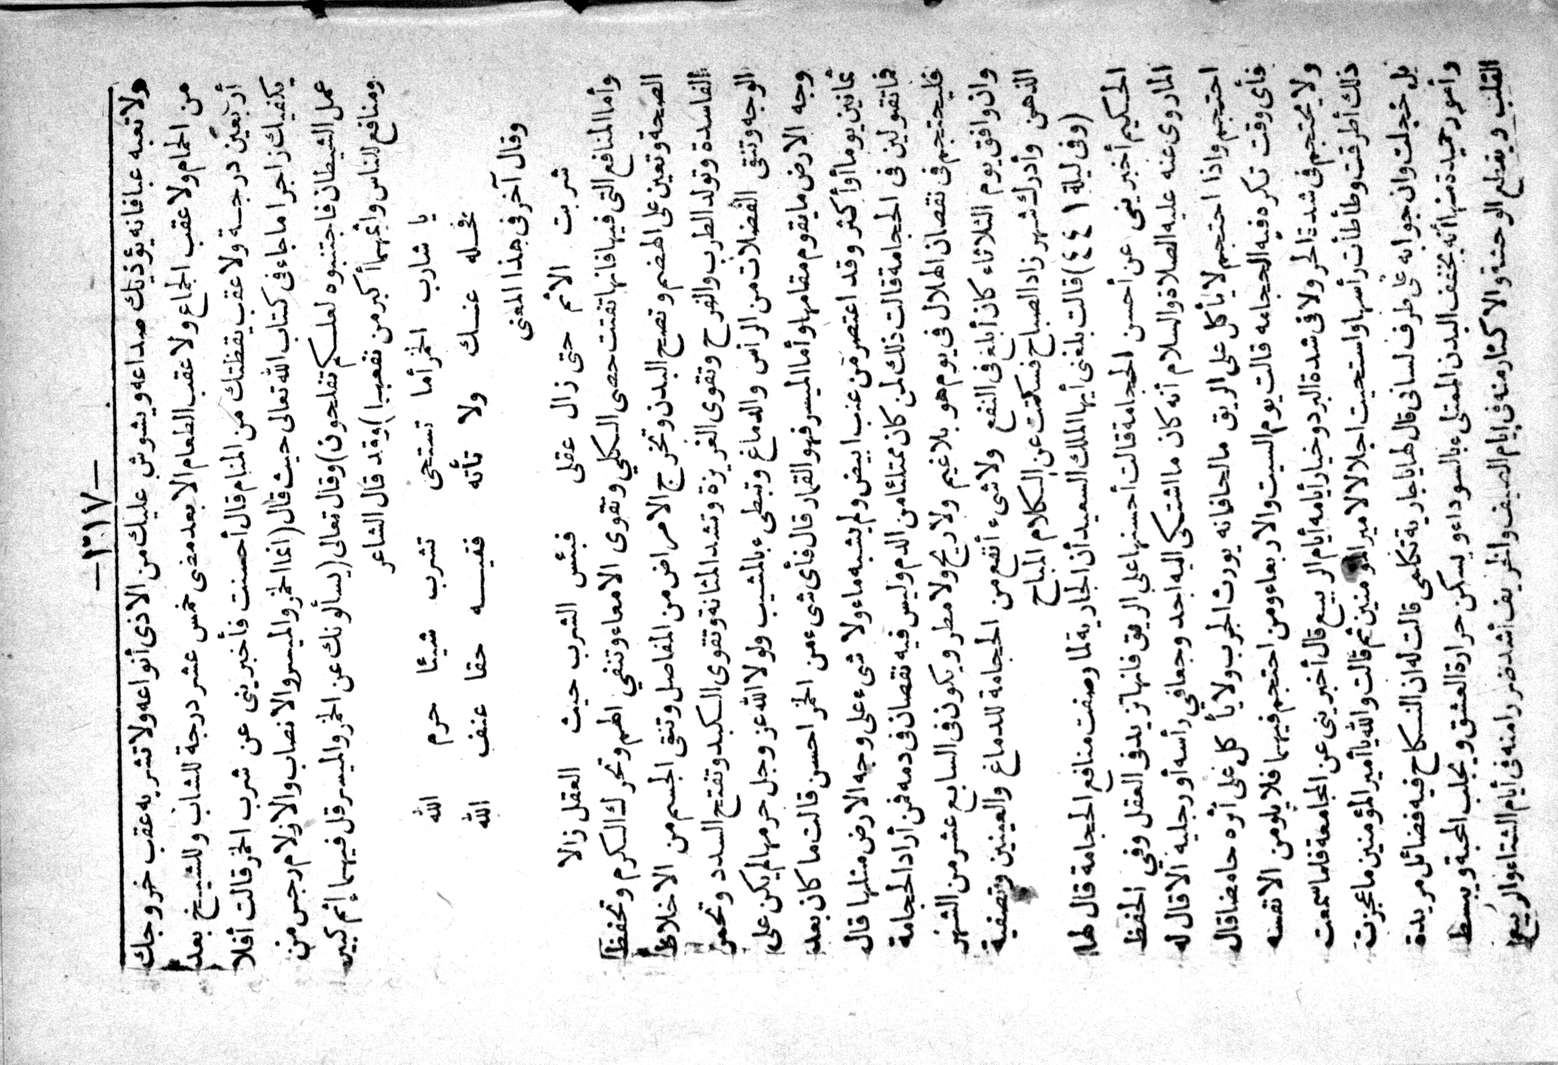 — ٣١٧ —
ولا تعبه عبا فانه يؤذيك صداعه ويشوش عليك من الاذى أنواعه ولا تشربه عقب خروجك
من الحمام ولا عقب الجماع ولا عقب الطعام الا بعد مضى خمس عشر درجة للشاب وللشيخ بعد
أربعين درجة ولا عقب يقظتك من المنام قال أحسنت فأخبرينى عن شرب الخمر قالت أفلا
يكفيك زاجرا ما جاء فى كتاب الله تعالى حيث قال (انما الخمر والميسر والانصاب والازلام رجس من
عمل الشيطان فاجتنبوه لعلكم تفلحون) وقال تعالى (يسألونك عن الخمر والميسر قل فيهما إثم كبير
ومنافع للناس واثمهما أكبر من نفعهما) وقد قال الشاعر
يا شارب الخمر أما تستحى تشرب شيئا حرم الله
فخله عنك ولا تأته ففيه حقا عنف الله
وقال آخر فى هذا المعنى
شربت الاثم حتى زال عقلى فبئس الشرب حيث العقل زالا
وأما المنافع التى فيها فانها تفتت حصى الكلى وتقوى الامعاء وتنفي الهم وتحرك الكرم وتحفظ
الصحة وتعين على الهضم وتصح البدن وتخرج الامراض من المفاصل وتنقى الجسم من الاخلاط
الفاسدة وتولد الطرب والفرح وتقوى الغريزة وتشد المثانة وتقوى الكبد وتفتح السدد وتحمر
الوجه وتنقى الفضلات من الرأس والدماغ وتبطىء بالمشيب ولولا الله عز وجل حرمها لم يكن على
وجه الارض ما يقوم مقامها وأما الميسر فهو القمار قال فأى شىء من الخمر احسن قالت ما كان بعد
ثمانين يوما أو أكثر وقد اعتصر من عنب ابيض ولم يشبه ماء ولا شىء على وجه الارض مثلها قال
فما تقولين فى الحجامة قالت ذلك لمن كان ممتلئا من الدم وليس فيه نقصان فى دمه فمن أراد الحجامة
فليحتجم فى نقصان الهلال فى يوم هو بلا غيم ولا ريح ولا مطر ويكون فى السابع عشر من الشهر
وان وافق يوم الثلاثاء كان أبلغ فى النفع ولا شىء أنفع من الحجامة للدماغ والعينين وتصفية
الذهن وأدرك شهر زاد الصباح فسكتت عن الكلام المباح
(وفى ليلة ٤٤١) قالت بلغنى أيها الملك السعيد أن الجارية لما وصفت منافع الحجامة قال لها
الحكيم أخبرينى عن أحسن الحجامة قالت أحسنها على الريق فانها تزيد فى العقل وفي الحفظ
لما روى عنه عليه الصلاة والسلام أنه كان ما اشتكى اليه احد وجعا في رأسه أو رجليه الا قال له
احتجم واذا احتجم لا يأكل على الريق مالحا فانه يورث الجرب ولا يأكل على أثره حامضا قال
فأى وقت تكره فيه الحجامة قالت يوم السبت والاربعاء ومن احتجم فيهما فلا يلومن الا نفسه
ولا يحتجم فى شدة الحر ولا فى شدة البرد وخيار أيامه أيام الربيع قال أخبرينى عن المجامعة فلما سمعت
ذلك أطرقت وطأطأت رأسها واستحيت اجلالا لامير المؤمنين ثم قالت والله يا أمير المؤمنين ما عجزت
بل خجلت وان جوابه على طرف لسانى قال لها يا جارية تكلمى قالت له ان النكاح فيه فضائل مزيدة
وأمور حميدة منها أنه يخفف البدن الممتلىء بالسوداء ويسكن حرارة العشق ويجلب المحبة ويبسط
القلب ويقطع الوحشة والاكثار منه فى ايام الصيف والخريف أشد ضررا منه فى أيام الشتاء والربيع